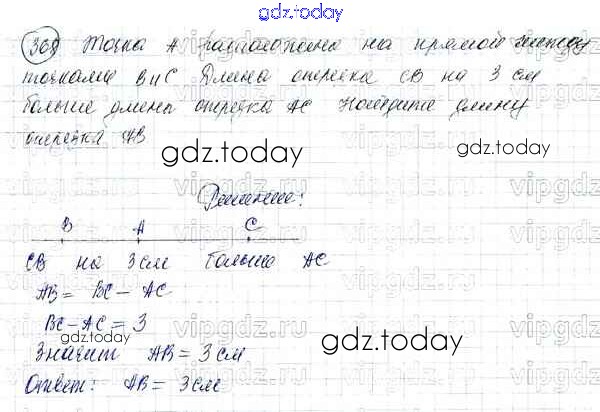 gdz.today
368 Точка А расположена на прямой между
точками В и С Длина отрезка СВ на 3 см
больше длины отрезка АС Найдите длину
отрезка АВ
gdz.today
gdz.today
Решение:
В А С
СВ на 3 см больше АС
АВ = ВС – АС
ВС – АС = 3
gdz.today
Значит АВ = 3 см
Ответ: АВ = 3 см
vipgdz.ru